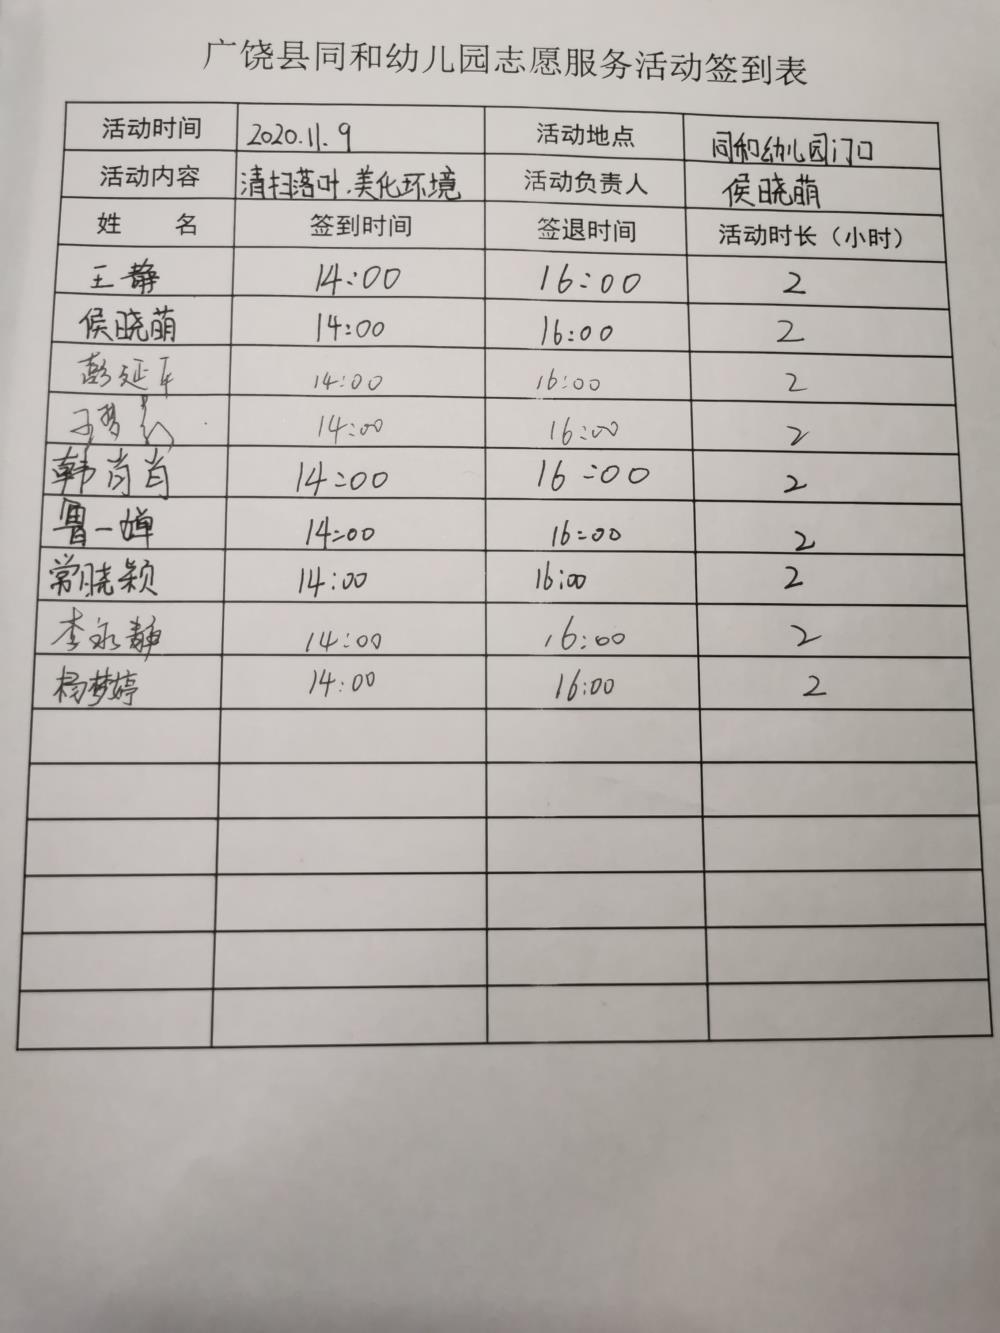 广饶县同和幼儿园志愿服务活动签到表
活动时间 2020.11.9 活动地点 同和幼儿园门口
活动内容 清扫落叶.美化环境 活动负责人 侯晓萌
姓 名 签到时间 签退时间 活动时长（小时）
王静 14:00 16:00 2
侯晓萌 14:00 16:00 2
彭延 14:00 16:00 2
14:00 16:00 2
韩肖肖 14:00 16:00 2
一婵 14:00 16:00 2
常晓颖 14:00 16:00 2
李永静 14:00 16:00 2
杨梦婷 14:00 16:00 2